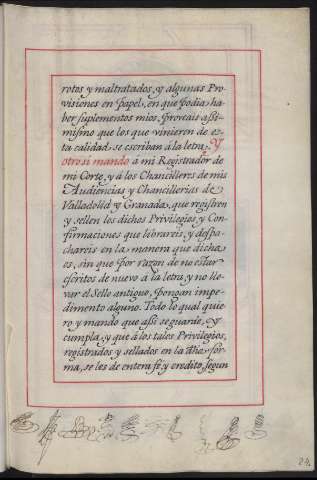 rotos y maltratados, y algunas Pro-
visiones en papel, en que podia ha-
ber suplementos mios, proveais assi-
mismo que los que vinieren de es-
ta calidad se escriban á la letra. Y
otrosi mando á mi Registrador de
mi Corte, y á los Chancilleres de mis
Audiencias y Chancillerias de
Valladolid y Granada, que registren
y sellen los dichos Privilegios y Con-
firmaciones que librareis, y despa-
chareis en la manera que dicha
es, sin que por razon de no estar
escritos de nuevo á la letra, y no lle-
var el Sello antiguo, pongan impe-
dimento alguno. Todo lo qual quie-
ro y mando que assi se guarde, y
cumpla, y que á los tales Privilegios,
registrados y sellados en la dha for-
ma, se les de entera fé y credito, segun